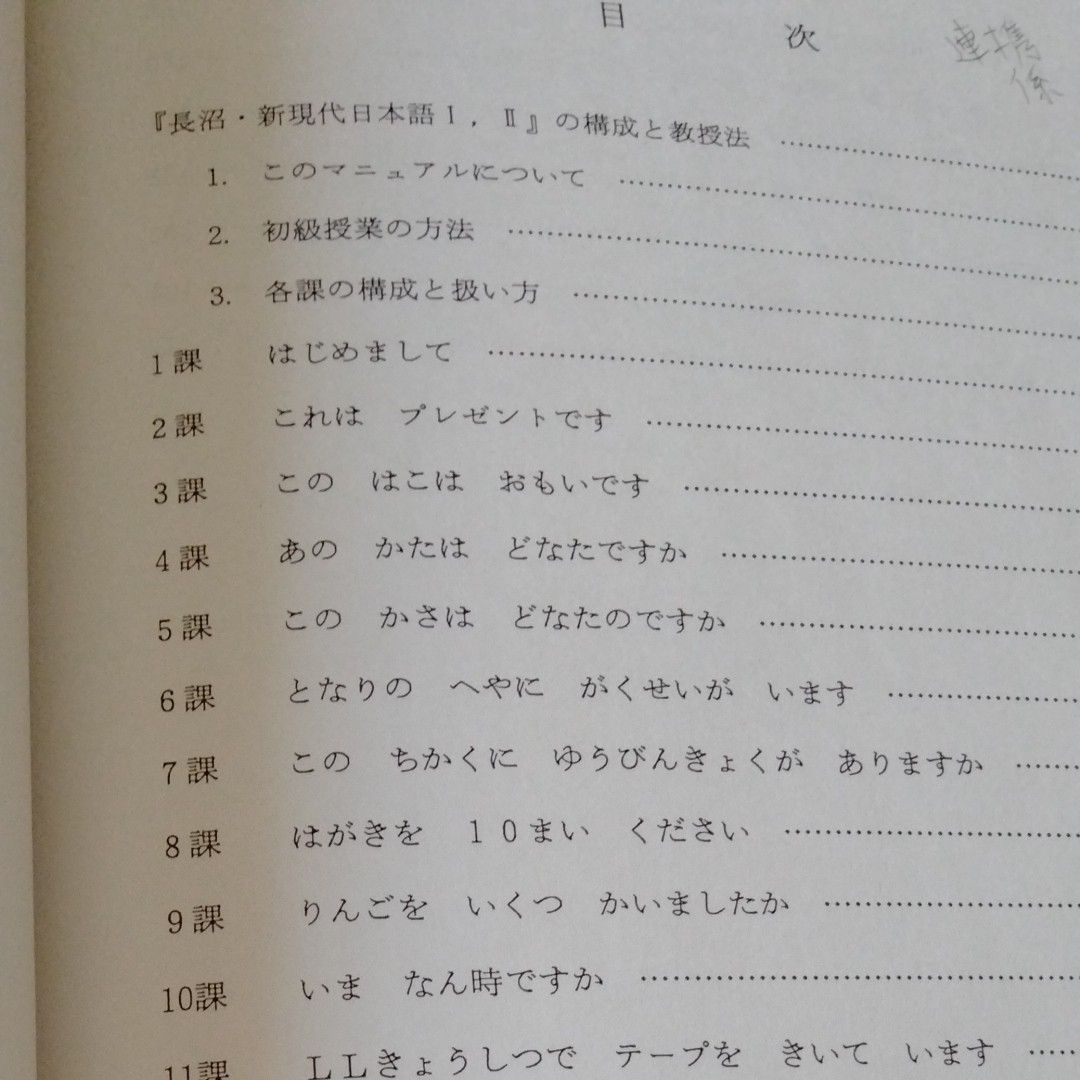 目次
連携
係
『長沼・新現代日本語Ⅰ，Ⅱ』の構成と教授法 ……………………
1. このマニュアルについて ……………………
2. 初級授業の方法 ……………………
3. 各課の構成と扱い方 ……………………
1課 はじめまして ……………………
2課 これは プレゼントです ……………………
3課 この はこは おもいです ……………………
4課 あの かたは どなたですか ……………………
5課 この かさは どなたのですか ……………………
6課 となりの へやに がくせいが います ……………………
7課 この ちかくに ゆうびんきょくが ありますか ……
8課 はがきを １０まい ください ……………………
9課 りんごを いくつ かいましたか ……………………
10課 いま なん時ですか ……………………
11課 ＬＬきょうしつで テープを きいて います ……